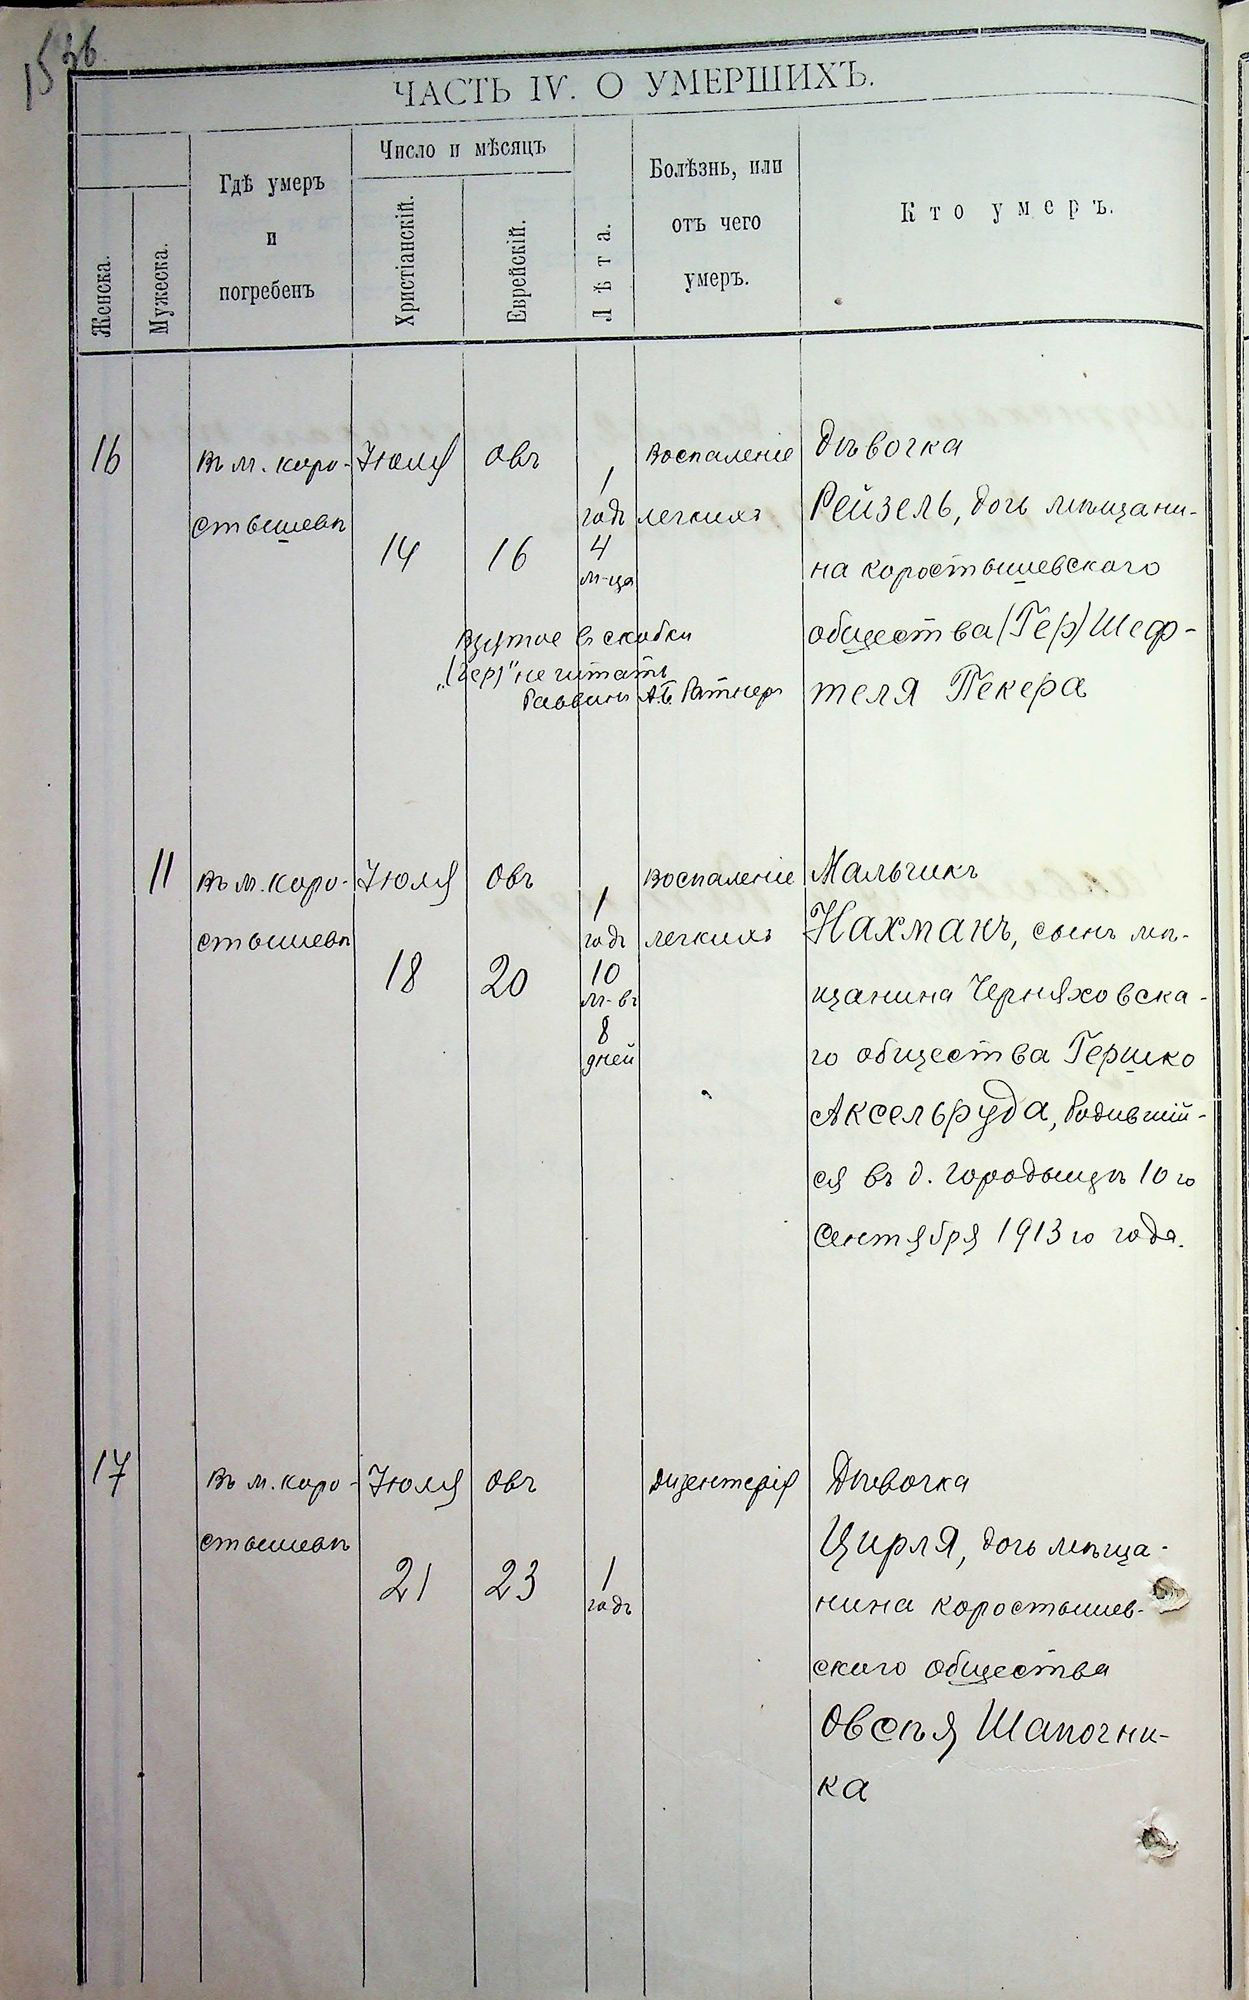 15 об.
ЧАСТЬ IV. О УМЕРШИХЪ.
Женска.
Мужеска.
Гдѣ умеръ
и
погребенъ
Число и мѣсяцъ
Христіанскій.
Еврейскій.
Лѣта.
Болѣзнь, или
отъ чего
умеръ.
Кто умеръ.
16
Въ м. Коро-
стышевѣ
Іюля
14
Овъ
16
1
годъ
4
м-ца
Воспаленіе
легкихъ
Дѣвочка
Рейзель, дочь мѣщани-
на Коростышевского
общества (Гер) Шеф-
теля Пекера
Взятое в скобки
„(Гер)" не читать
Раввинъ А.Б. Ратнеръ
11
Въ м. Коро-
стышевѣ
Іюля
18
Овъ
20
1
годъ
10
м-въ
8
дней
Воспаленіе
легкихъ
Мальчикъ
Нахманъ, сынъ мѣ-
щанина Черняховска-
го общества Гершко
Аксельруда, родившій-
ся въ д. Городыщѣ 10го
Сентября 1913го года.
17
Въ м. Коро-
стышевѣ
Іюля
21
Овъ
23
1
годъ
Дизентерія
Дѣвочка
Цирля, дочь мѣща-
нина Коростышев-
ского общества
Овсѣя Шапочни-
ка